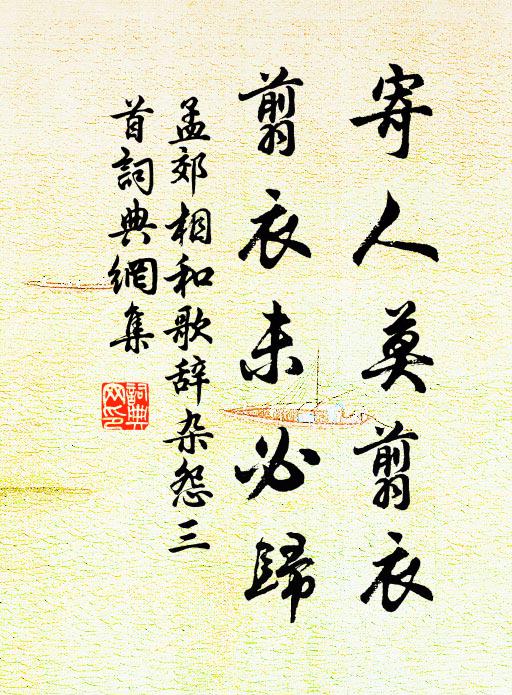 寄人莫翦衣
翦衣未必歸
孟郊相和歌辞杂怨三
首詞典網集
詞典
网印